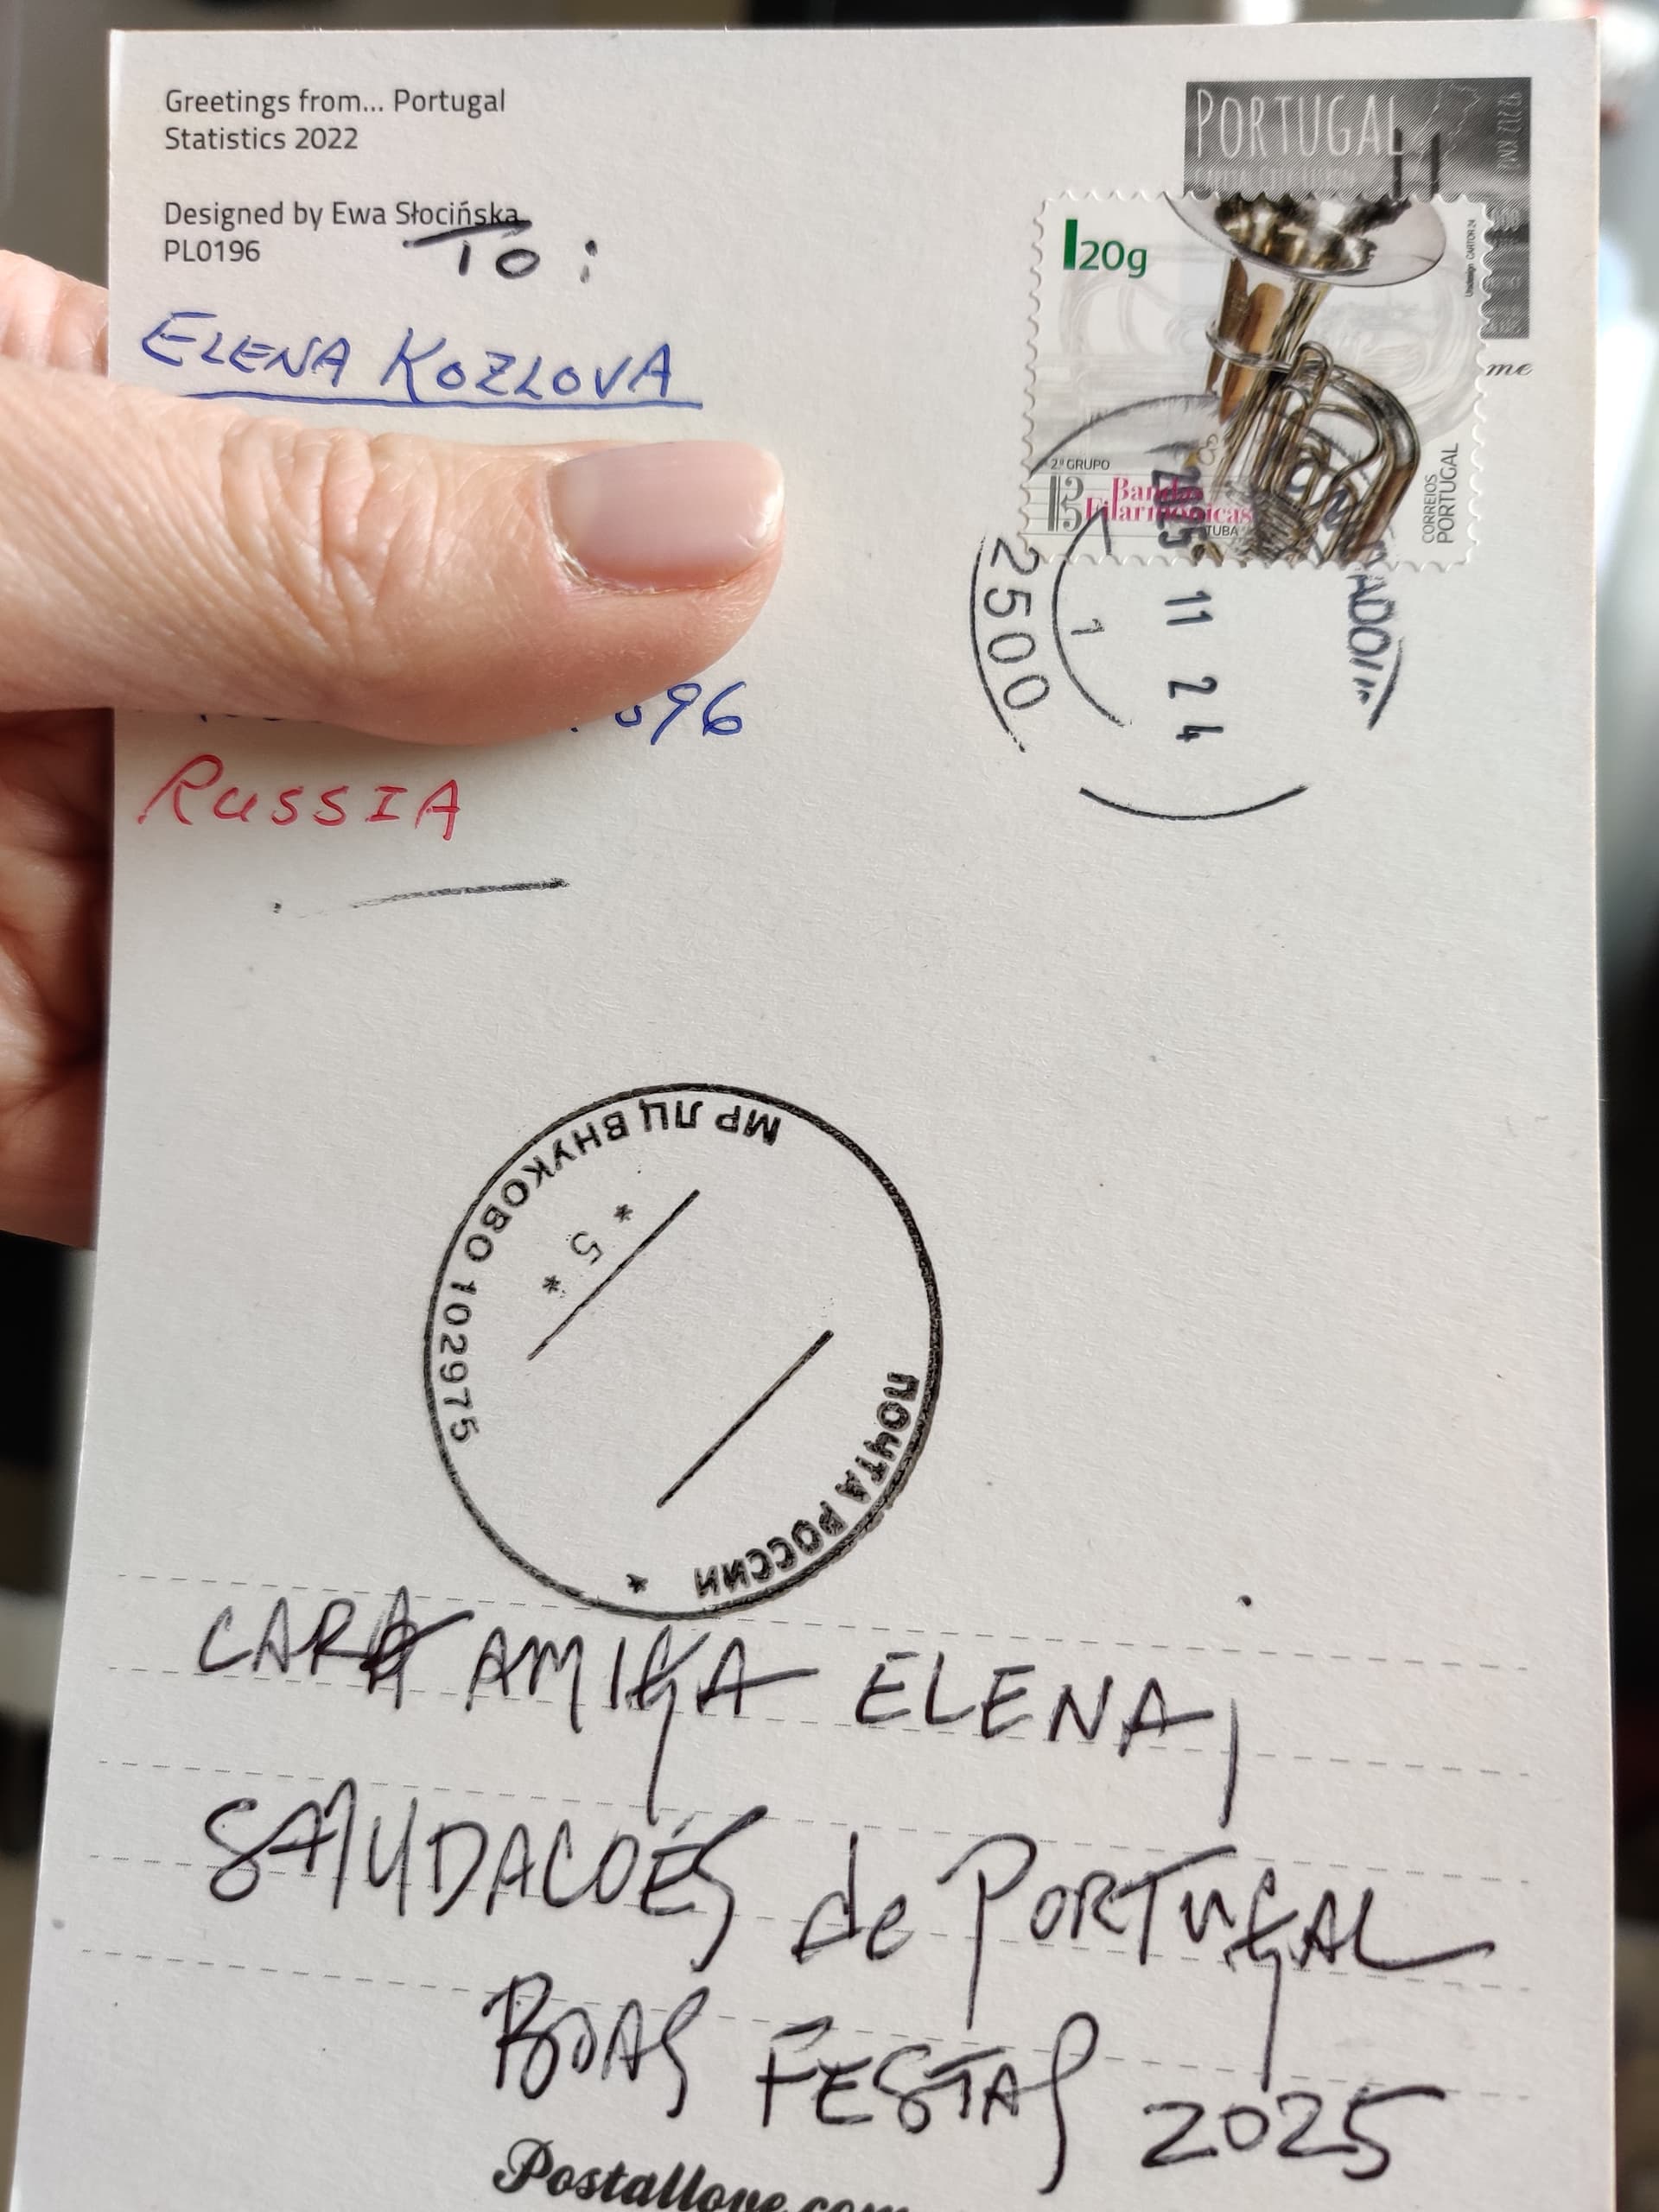 Greetings from... Portugal
Statistics 2022
Designed by Ewa Słocińska
PL0196
TO:
ELENA KOZLOVA
96
RUSSIA
PORTUGAL
me
I20g
2.º GRUPO
Bandas
Filarmónicas
TUBA
CORREIOS
PORTUGAL
2500
1
2025 11 24
МР ЛЦ ВНУКОВО 102975
* 5 *
ПОЧТА РОССИИ *
CARA AMIGA ELENA,
SAUDACOES de PORTUGAL
BOAS FESTAS 2025
Postallove.com